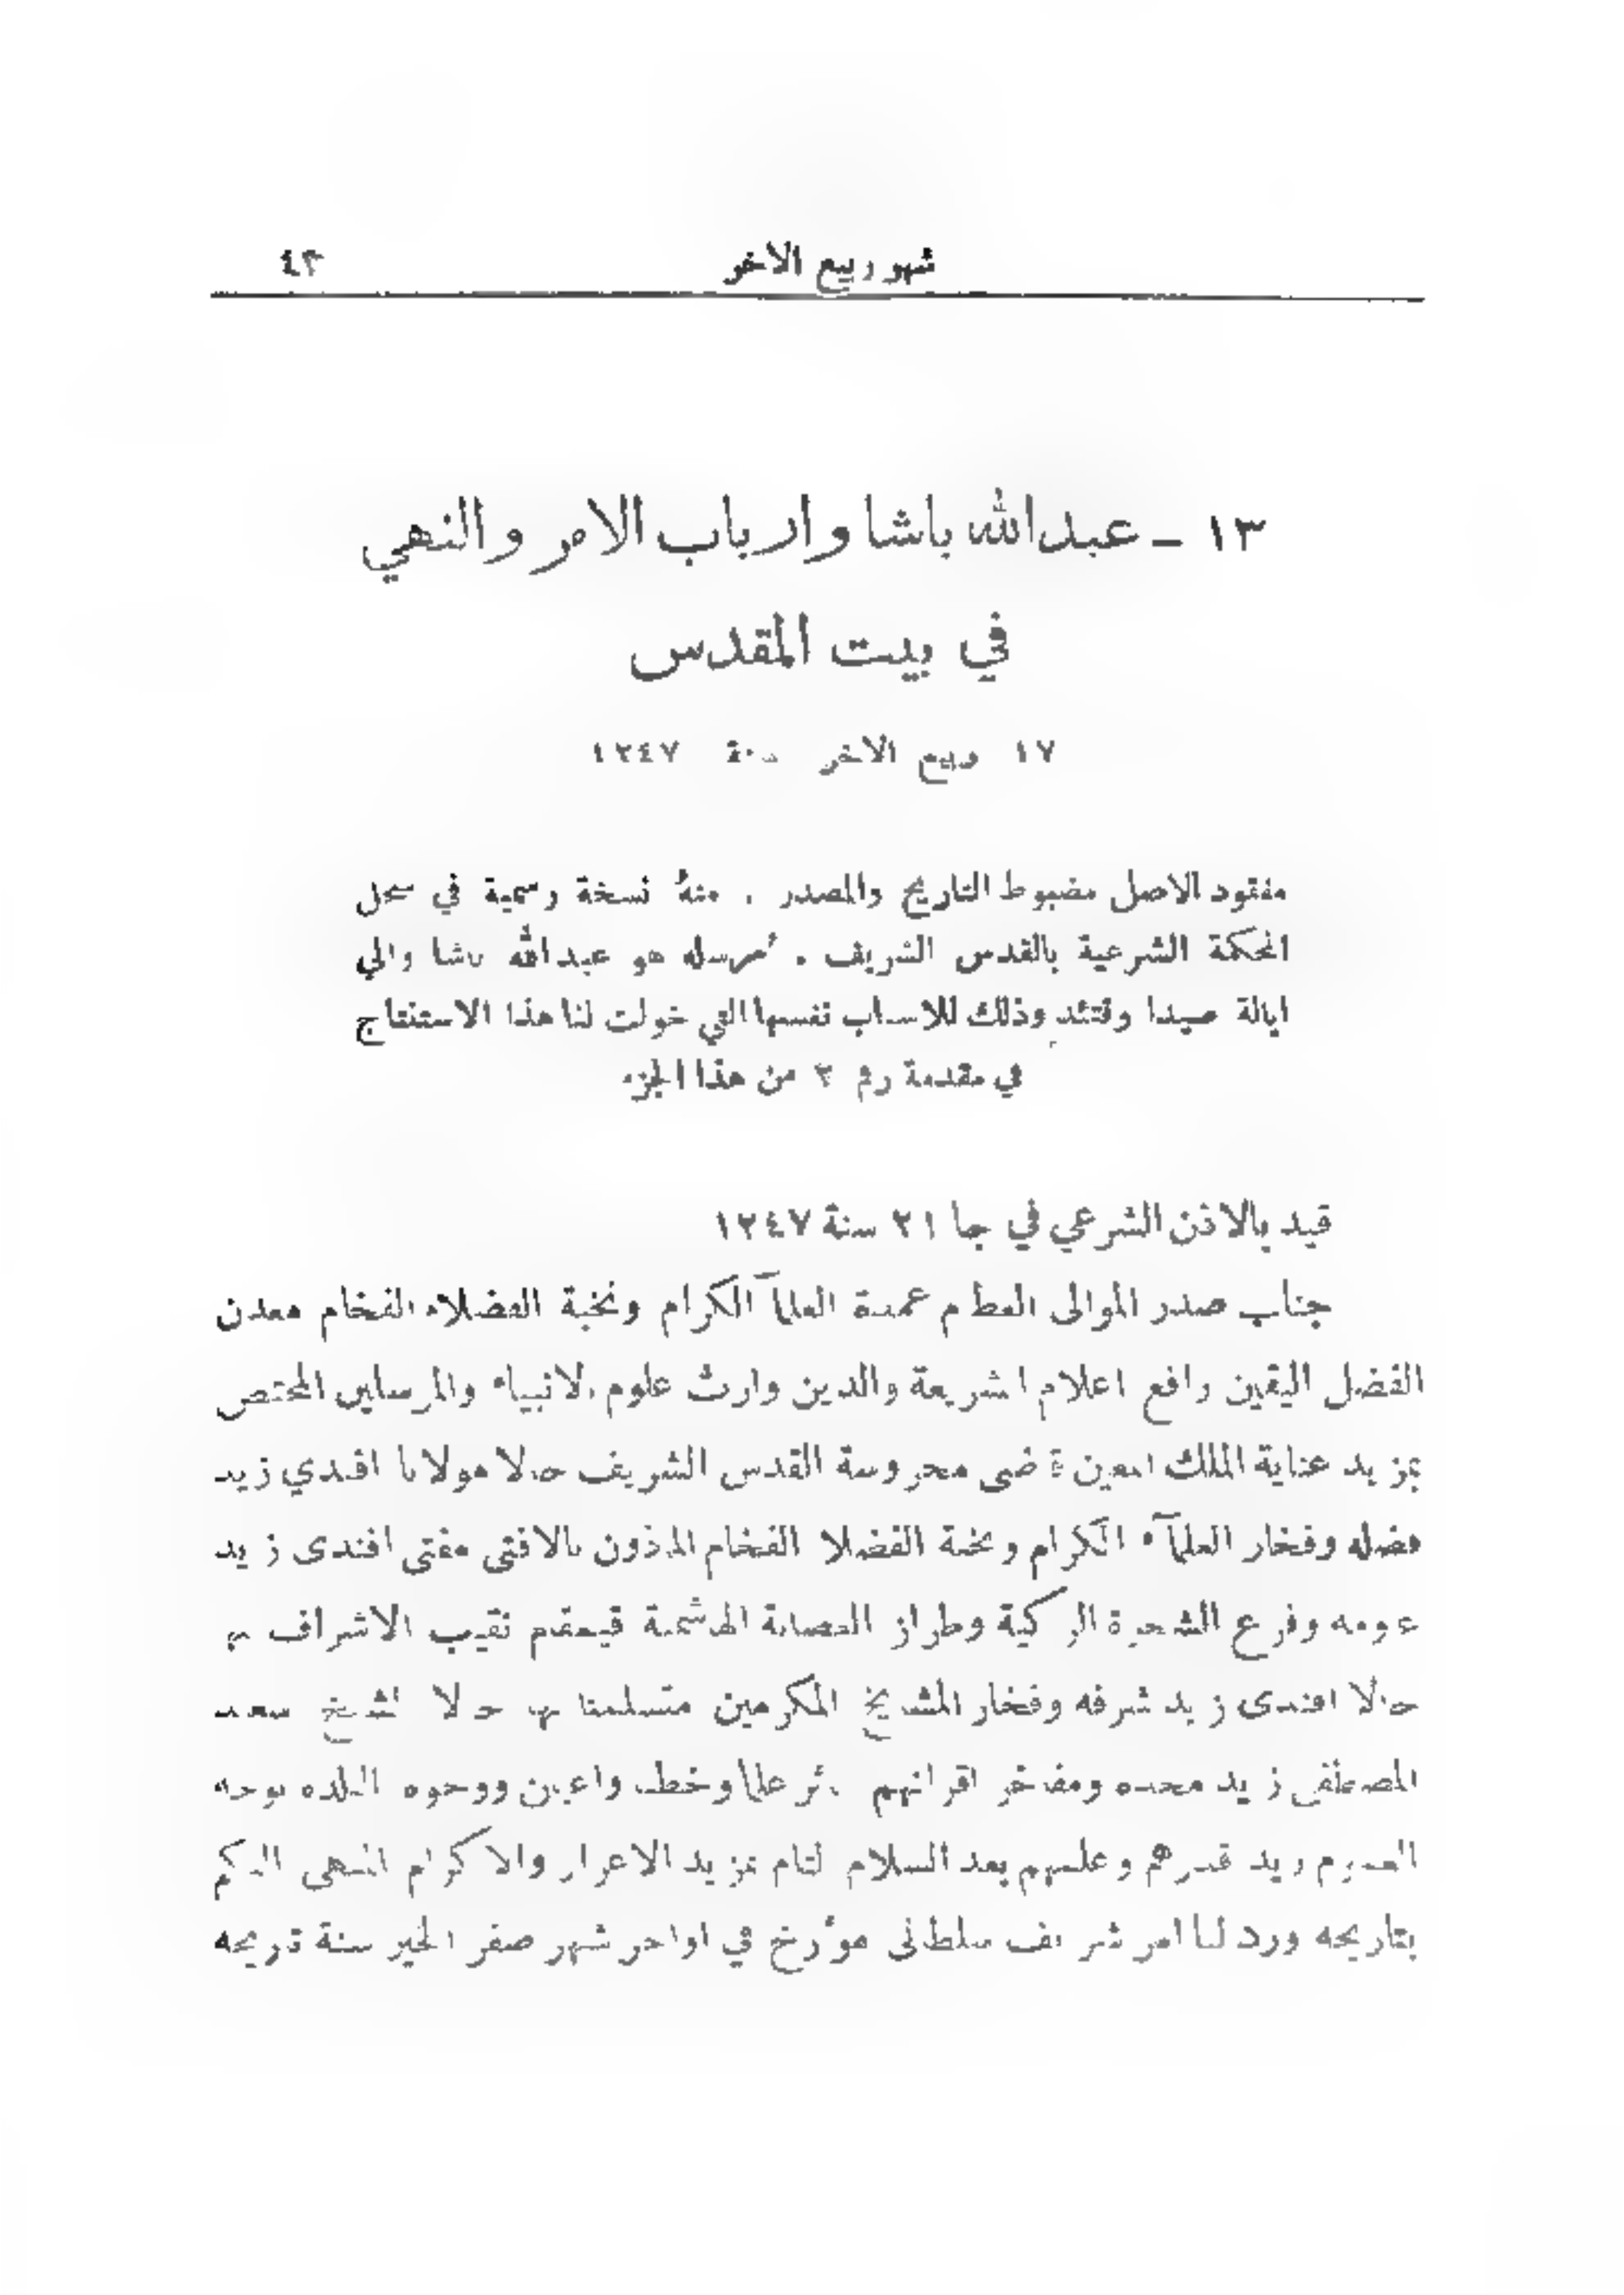 شهر ربيع الاخر ٤٣
١٣ - عبدالله باشا وارباب الامر والنهي
في بيت المقدس
١٧ ربيع الاخر سنة ١٢٤٧
مفقود الاصل مضبوط التاريخ والمصدر . منهُ نسخة رسمية في سجل
المحكمة الشرعية بالقدس الشريف . مُرسله هو عبدالله باشا والي
ايالة صيدا وقتئذٍ وذلك للاسباب نفسها التي خولت لنا هذا الاستنتاج
في مقدمة رقم ٢ من هذا الجزء
قيد بالاذن الشرعي في جا ٢١ سنة ١٢٤٧
جناب صدر الموالى العظام عمدة العلمآ الكرام ونخبة الفضلاء الفخام معدن
الفضل اليقين رافع اعلام الشريعة والدين وارث علوم الانبياء والمرسلين المختص
بمزيد عناية الملك المعين قاضى محروسة القدس الشريف حالا مولانا افندي زيد
فضله وفخار العلمآء الكرام ونخبة الفضلا الفخام الماذون بالافتى مفتى افندى زيد
علومه وفرع الشجرة الزكية وطراز العصابة الهاشمية قيمقام نقيب الاشراف بها
حالا افندى زيد شرفه وفخار المشايخ المكرمين متسلمنا بها حالا الشيخ سعيد
المصطفى زيد مجده ومفاخر اقرانهم ساير علما وخطبا واعيان ووجوه البلده بوجه
العموم زيد قدرهم وعليهم بعد السلام التام بمزيد الاعزاز والاكرام المنهى اليكم
بتاريخه ورد لنا امر شريف سلطانى مؤرخ في اواخر شهر صفر الخير سنة تاريخه